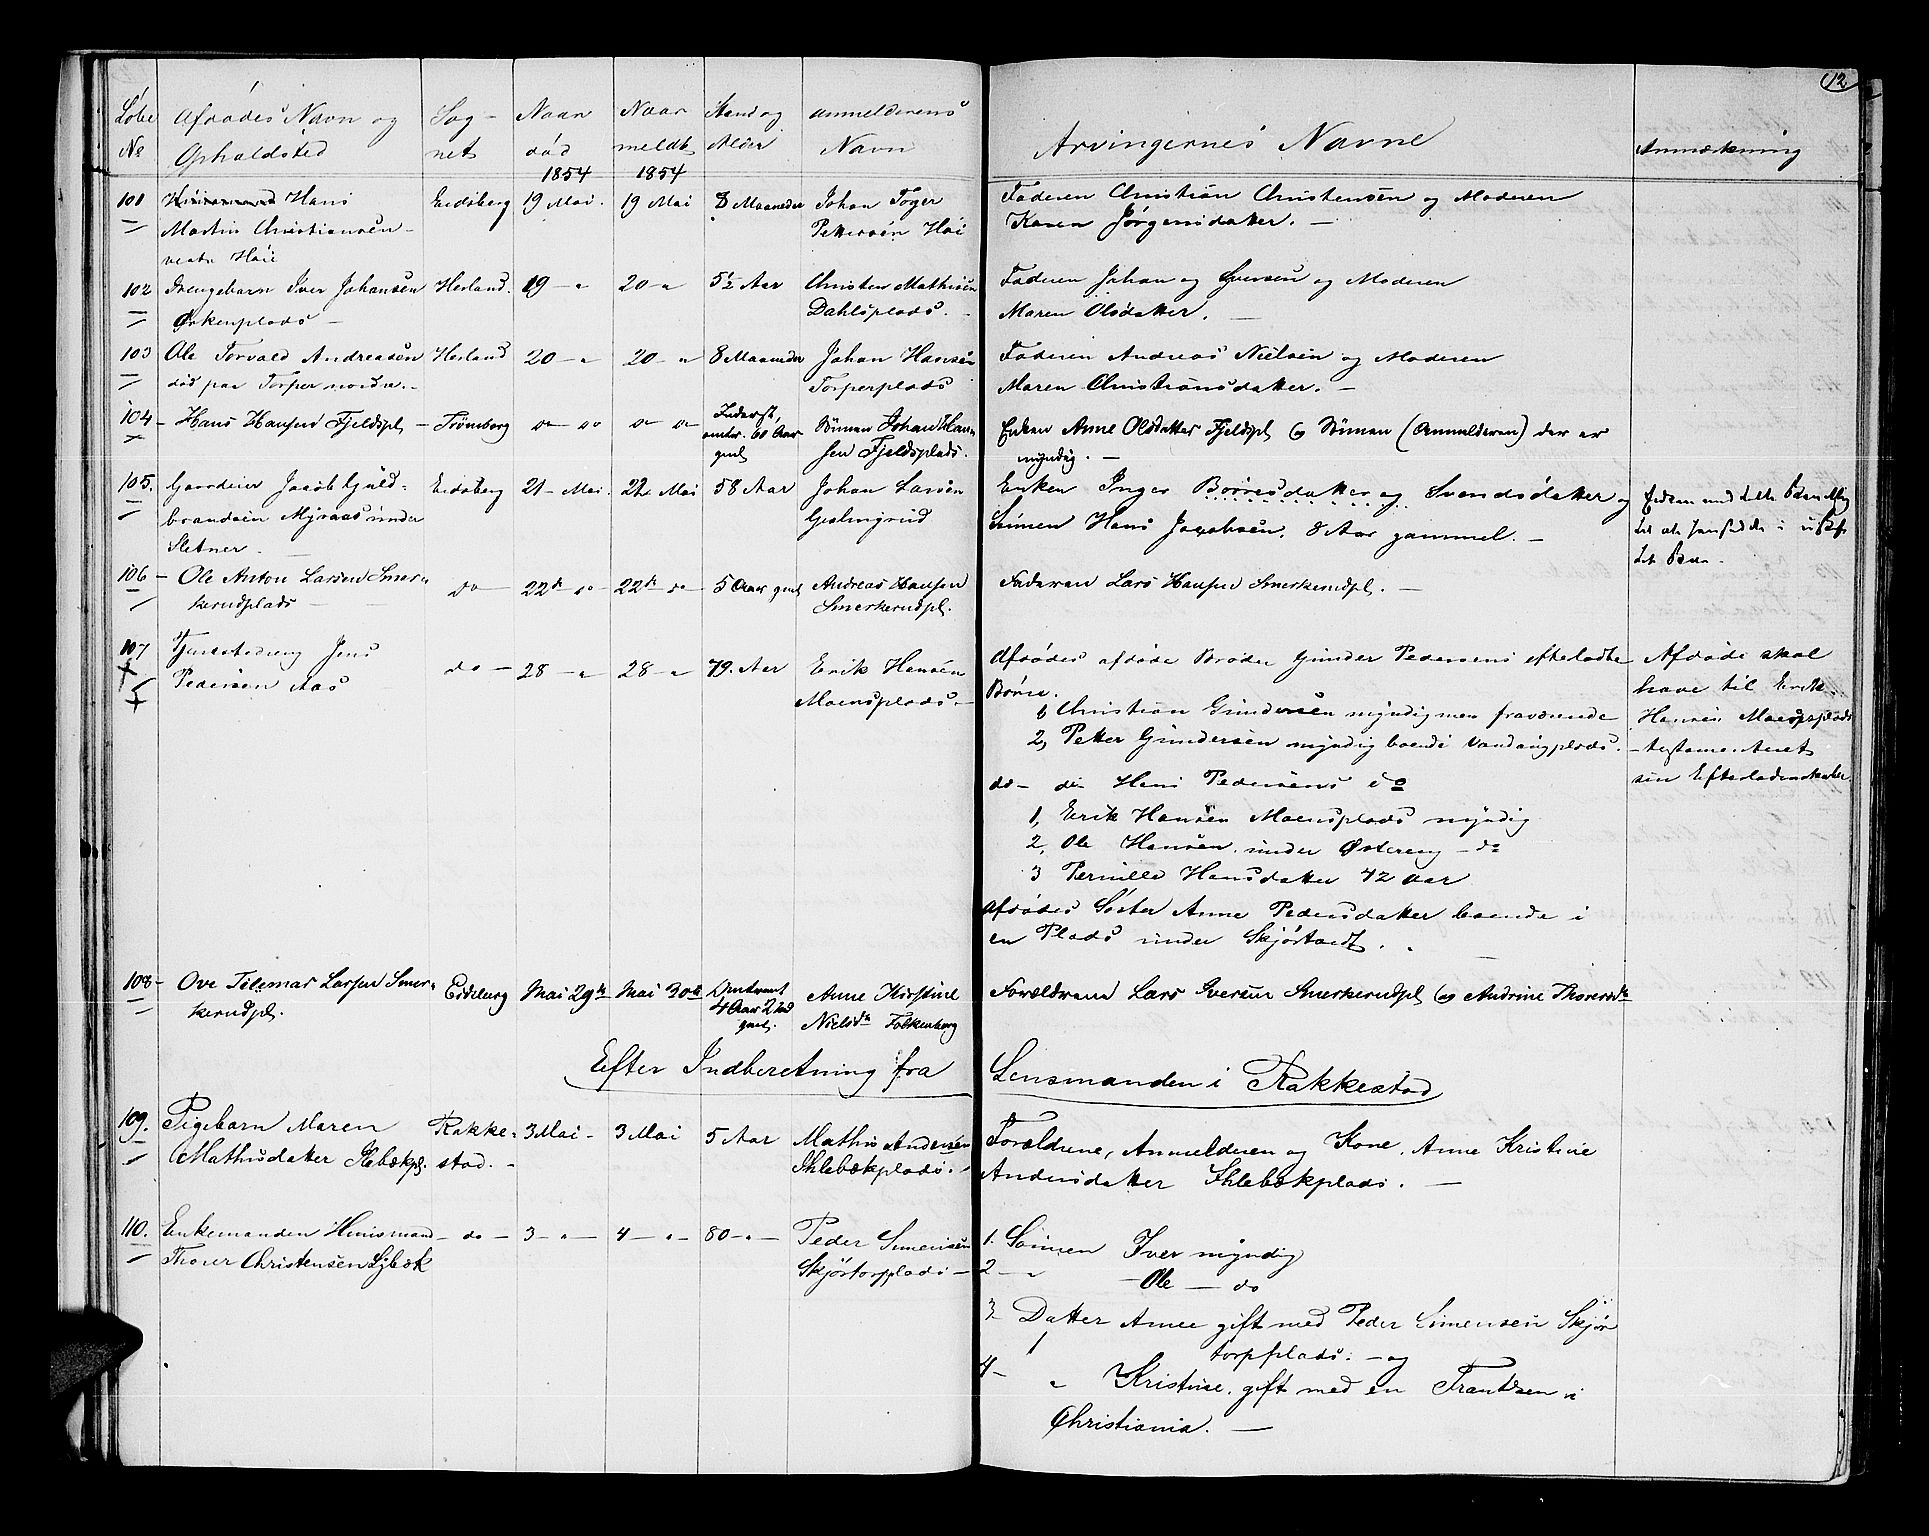 12
Løbe No | Afdødes Navn og Opholdsted | Sognet | Naar død 1854 | Naar meldt 1854 | Stand og Alder | Anmelderens Navn | Arvingernes Navne | Anmærkning
101 Hans
Martin Christiansen
vestr. Høie
Eidsberg 19 Mai. 19 Mai 8 Maaneder
Johan Toger
Pettersen Høi
Faderen Christian Christensen og Moderen
Karen Jørgensdatter. —
102 Drengebarn Iver Johansen
Ørkenplads —
Herland. 19 — " 20 — " 5½ Aar
Christen Mathisen
Dahlsplads. —
Faderen Johan og Iversen og Moderen
Maren Olsdatter. —
103 Ole Torvald Andreasen
død paa Torper nordre. —
Herland 20 — " 20 — " 8 Maaneder
Johan Hansen
Torperplads
Faderen Andreas Nielsen og Moderen
Maren Christiansdatter. —
104 — Hans Hansen Fjeldspl —
Trømborg do do do do
Inderst,
omtr. 60 Aar
gml
Sønnen Johan Han
sen Fjeldsplads.
Enken Anne Olsdatter Fjeldspl og Sønnen (Anmelderen) der er
myndig. —
105. Gaardeier Jacob Guld-
brandsen Myraas under
Sletner. —
Eidsberg 21 — Mai. 22 Mai 58 Aar
Johan Larsen
Geslingrud
Enken Inger Børresdatter og Svendsdatter og
Sønnen Hans Jacobsen. 8 Aar gammel. —
det Boe.
106 — Ole Anton Larsen Smer-
kerudplads —
do — 22de do — 22de do — 5 Aar gml
Andreas Hansen
Smerkerudpl.
Faderen Lars Hansen Smerkerudpl. —
107 Jens
Pedersen Aas
do — 28 — " 28 — " 79. Aar
Erik Hansen
Moensplads. —
Afdødes afdøde Broder Gunder Pedersens efteladte
Børn.
1, Christian Gundersen myndig men fraværende
2, Petter Gundersen myndig boende Vandungplads.
do — do Hans Pedersens do
1, Erik Hansen Moensplads myndig
2, Ole Hansen under Østereng — do
3 Pernille Hansdatter 42 Aar
Afdødes Søster Anne Pedersdatter boende i
en Plads under Skjørtorf.
Afdøde skal
have til Erik
Hansen Moensplads
testamenteret
sin Efterladenskaber
108 — Ove Tilemar Larsen Smer-
kerudpl.
Eidsberg Mai 29de Mai 30de
Omtrent
4 Aar 2 Md
gml.
Anne Kirstine
Nielsdr Folkenborg
Forældrene Lars Iversen Smerkerudpl og Andrine Thoresdr
Efter Indberetning fra Lensmanden i Rakkestad
109. Pigebarn Maren
Mathisdatter Slebækpl.
Rakke-
stad. —
3 Mai — 3 Mai 5 Aar
Mathis Andersen
Shlebækplads. —
Forældrene, Anmelderen og Kone, Anne Kristine
Andersdatter Shlebækplads. —
110. Enkemanden Huusmand
Thorer Christensen Lybæk
— do — 3 — " — 4 — " — 80 — " —
Peder Simensen
Skjørtorpplads —
1. Sønnen Iver myndig
2 — " — Ole — do
3 — Datter Anne gift med Peder Simensen Skjør
torpplads. — og
4 — " Kristine, gift med en Frantzen i
Christiania. —